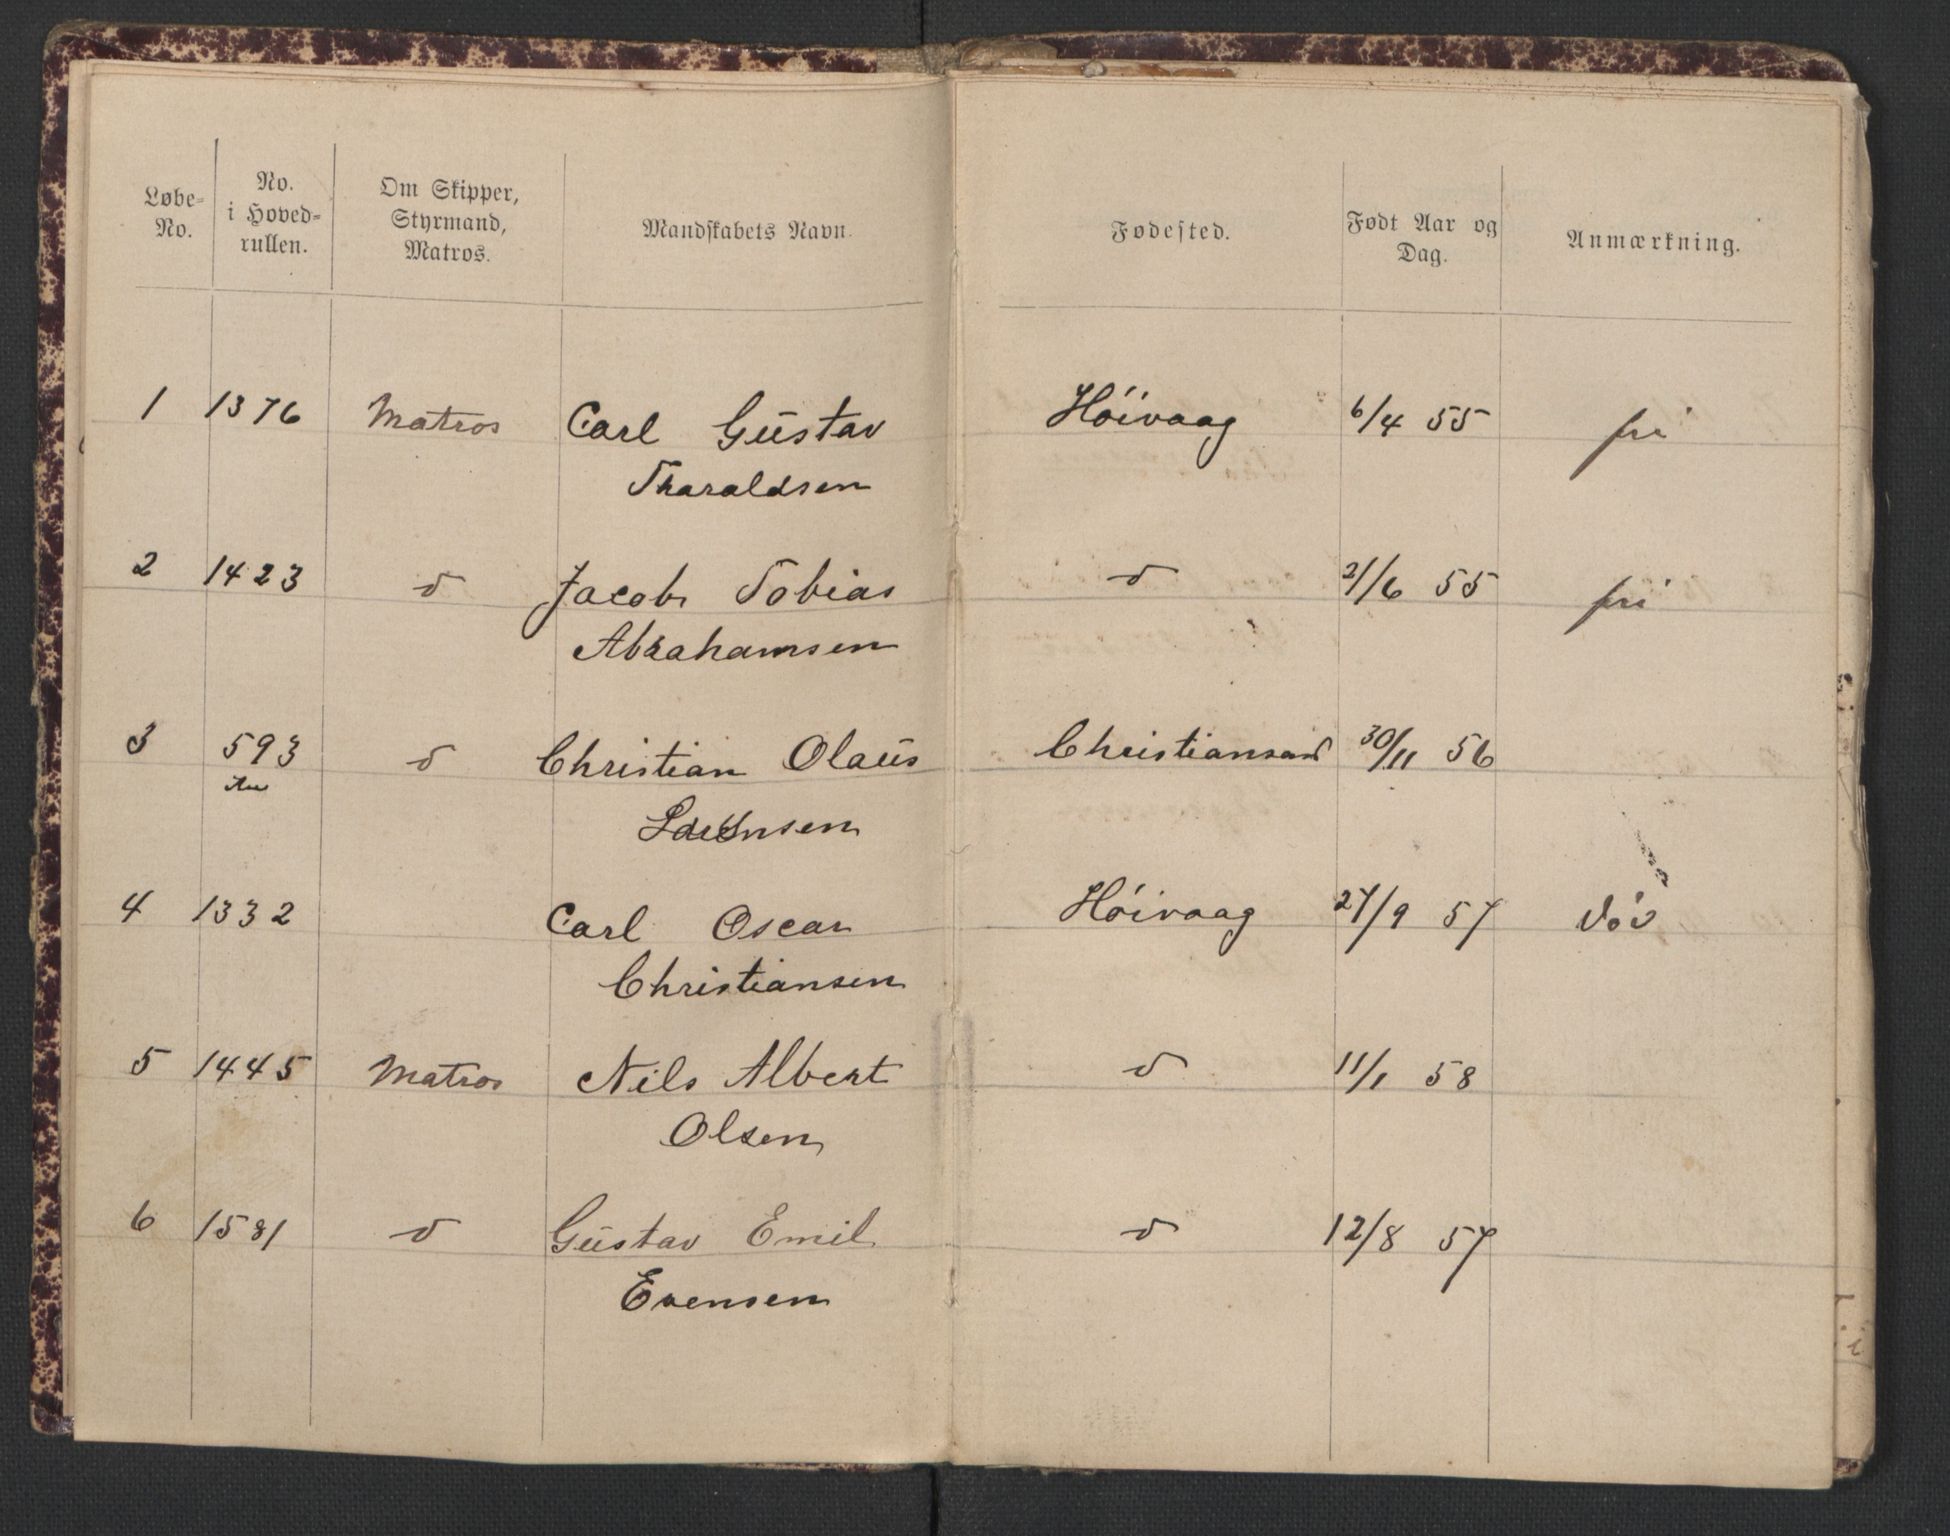 Løbe-No. | No. i Hoved-rullen. | Om Skipper, Styrmand, Matros. | Mandskabets Navn. | Fødested. | Født Aar og Dag. | Anmærkning.
1 1376 Matros Carl Gustav Høivaag 6/4 55 fri
Tharaldsen
2 1423 d Jacob Tobias d 2/6 55 fri
Abrahamsen
3 593 d Christian Olaus Christiansand 30/11 56
Sørensen
4 1332 Carl Oscar Høivaag 27/9 57
Christiansen
5 1445 Matros Nils Albert d 11/1 58
Olsen
6 1581 d Gustav Emil d 12/8 57
Evensen